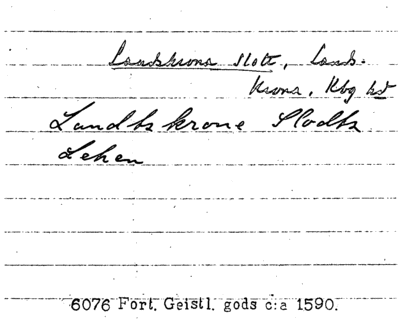 Landskrona slott, Lands-
krona, Kbg hd
Landtz krone Slodtz
Lehen
6076 Fort. Geistl. gods c:a 1590.